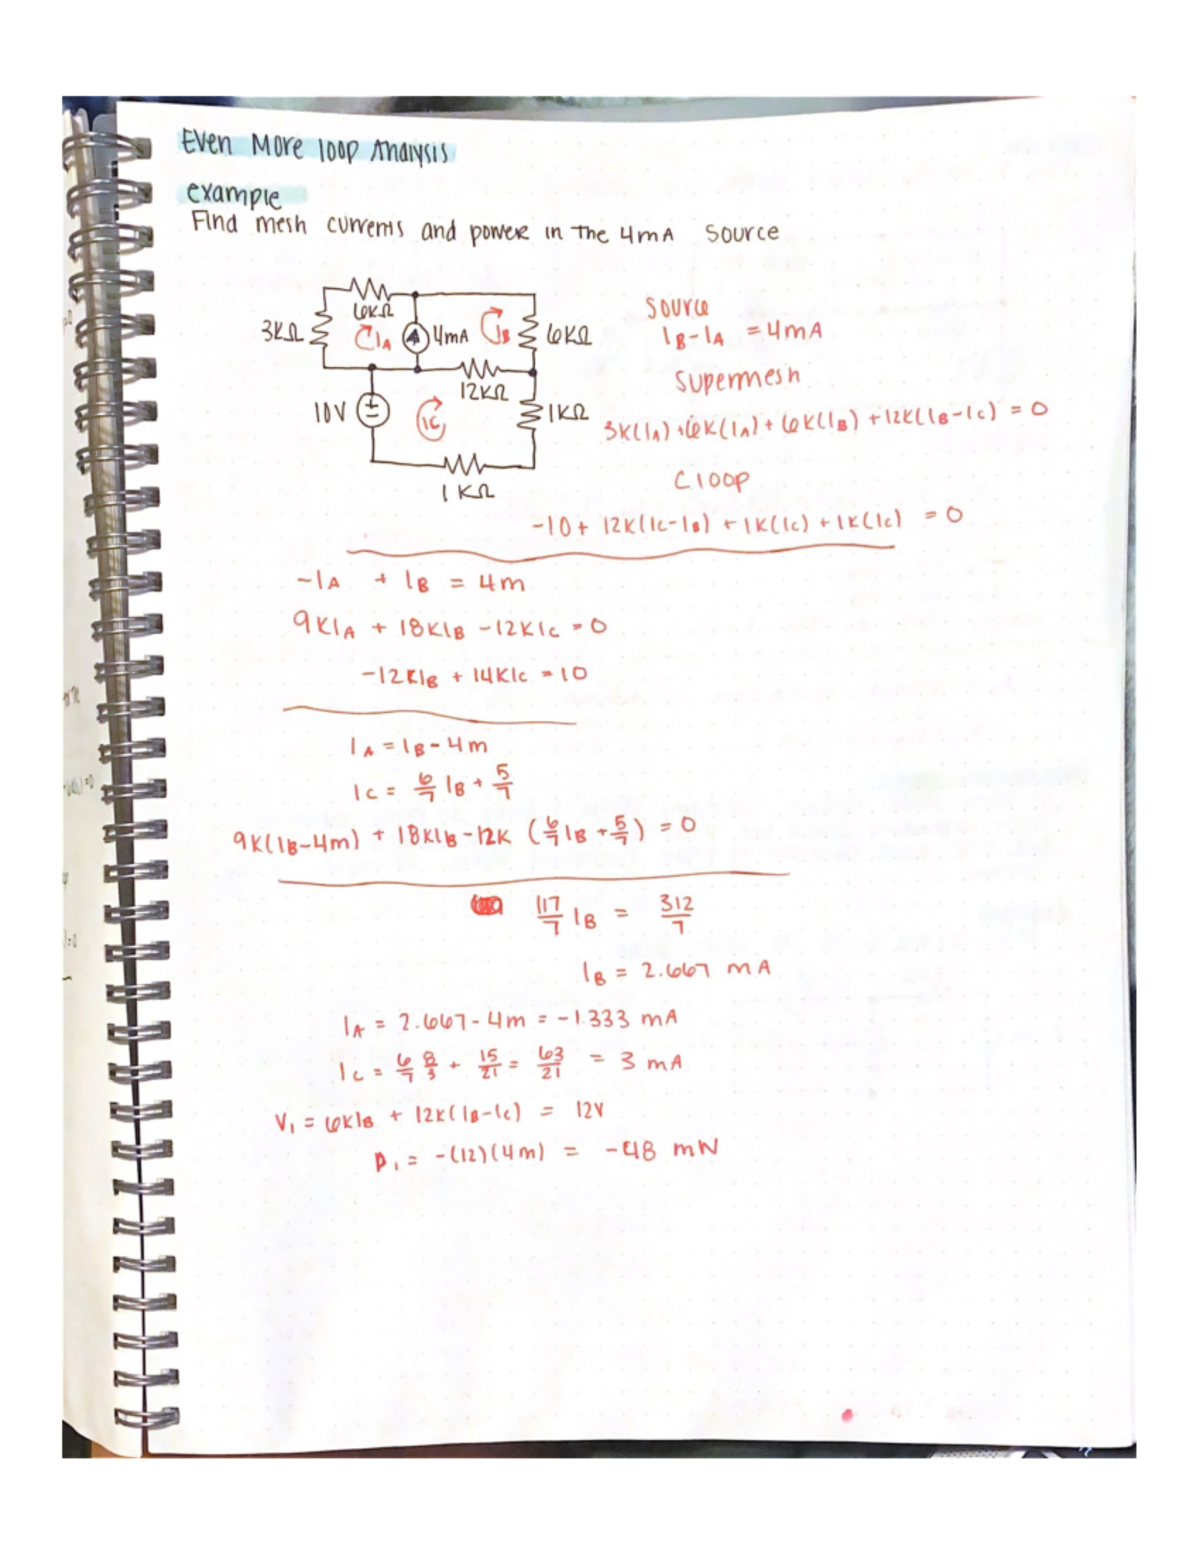 Even More loop Analysis
example
Find mesh currents and power in the 4mA source
6KΩ
3KΩ
IA
4mA
IB
6KΩ
12KΩ
10V
IC
1KΩ
1KΩ
Source
IB-IA = 4mA
Supermesh
3K(IA)+6K(IA)+6K(IB)+12K(IB-IC) = 0
C loop
-10+ 12K(IC-IB) + 1K(IC) + 1K(IC) = 0
-IA + IB = 4m
9KIA + 18KIB -12KIC = 0
-12KIB + 14KIC = 10
IA = IB-4m
IC = 6/7 IB + 5/7
9K(IB-4m) + 18KIB-12K (6/7 IB + 5/7) = 0
117/7 IB = 312/7
IB = 2.667 mA
IA = 2.667-4m = -1.333 mA
IC = 6/7 8/3 + 15/21 = 63/21 = 3 mA
V1 = 6KIB + 12K(IB-IC) = 12V
P1 = -(12)(4m) = -48 mW